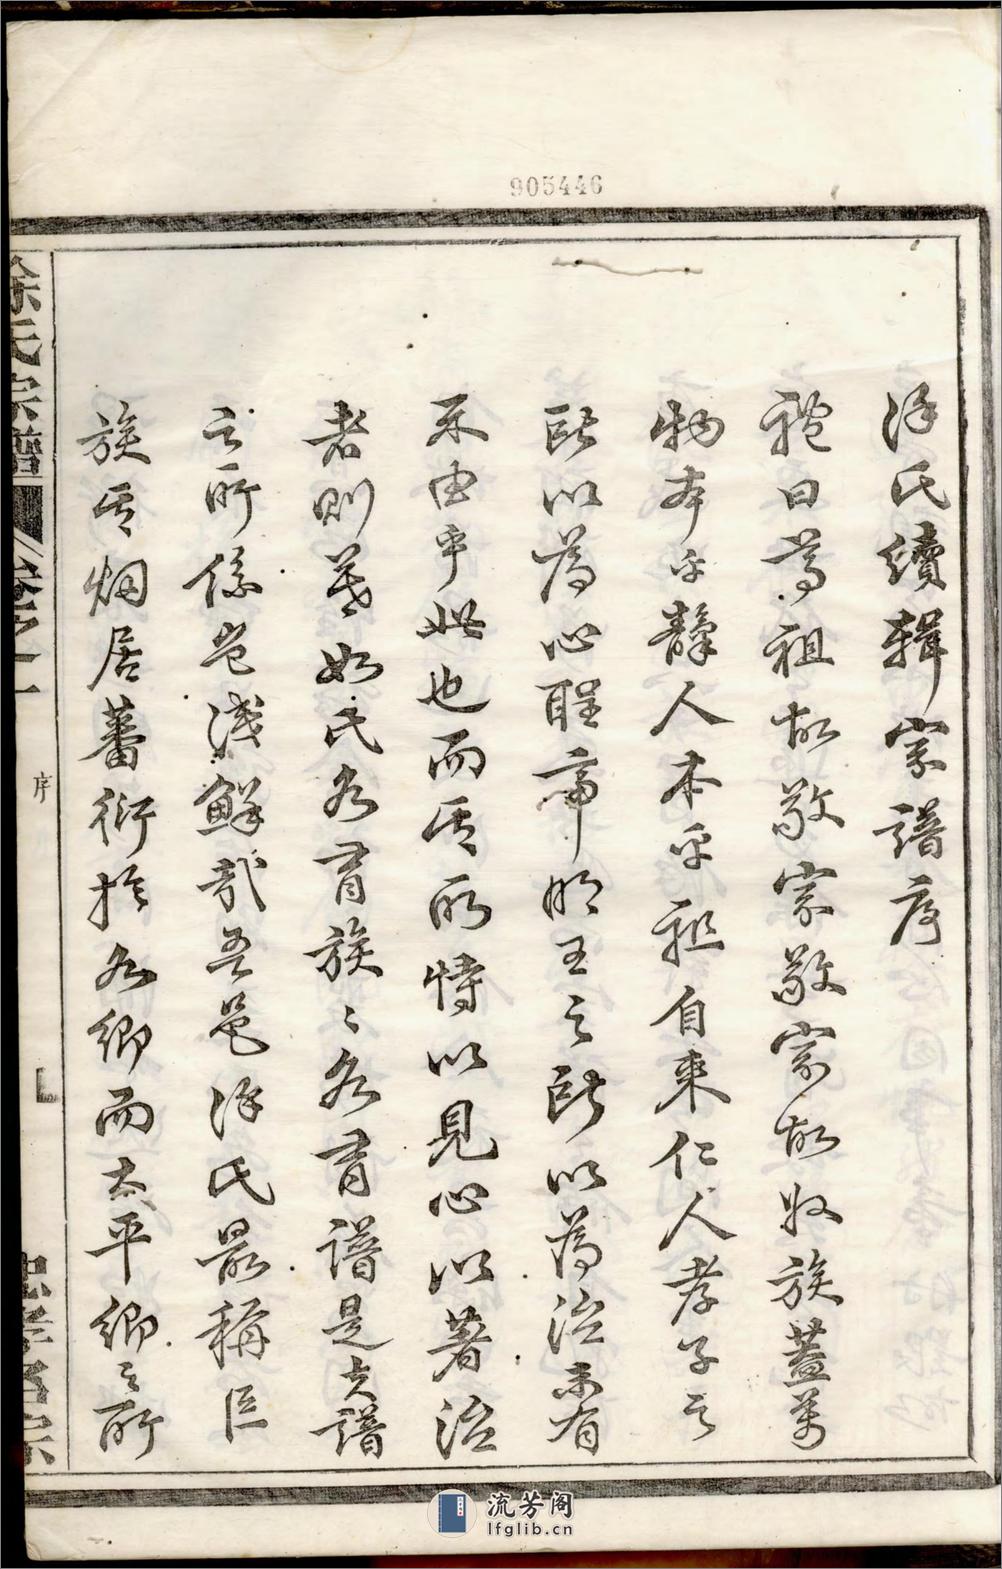 905446
徐氏續輯宗譜序
禮曰尊祖故敬宗敬宗故收族蓋萬
物本乎靜人本乎祖自來仁人孝子之
所以為心聖帝明王之所以為治未有
不由乎此也而其所恃以見心以著治
者則莫如氏各有族〻各有譜是夫譜
之所係豈淺鮮哉吾邑徐氏最稱巨
族其烟居蕃衍於各鄉而太平鄉之所
徐氏宗譜
卷之一
序
忠孝名宗
流芳阁
lfglib.cn